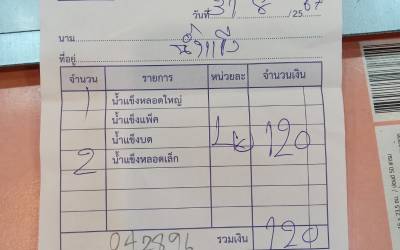 วันที่ 31 / 8 / 25 67
นาม น้ำแข็ง
ที่อยู่
จำนวน รายการ หน่วยละ จำนวนเงิน
1 น้ำแข็งหลอดใหญ่
น้ำแข็งแพ็ค
น้ำแข็งบด 120
2 น้ำแข็งหลอดเล็ก
042896 รวมเงิน 120